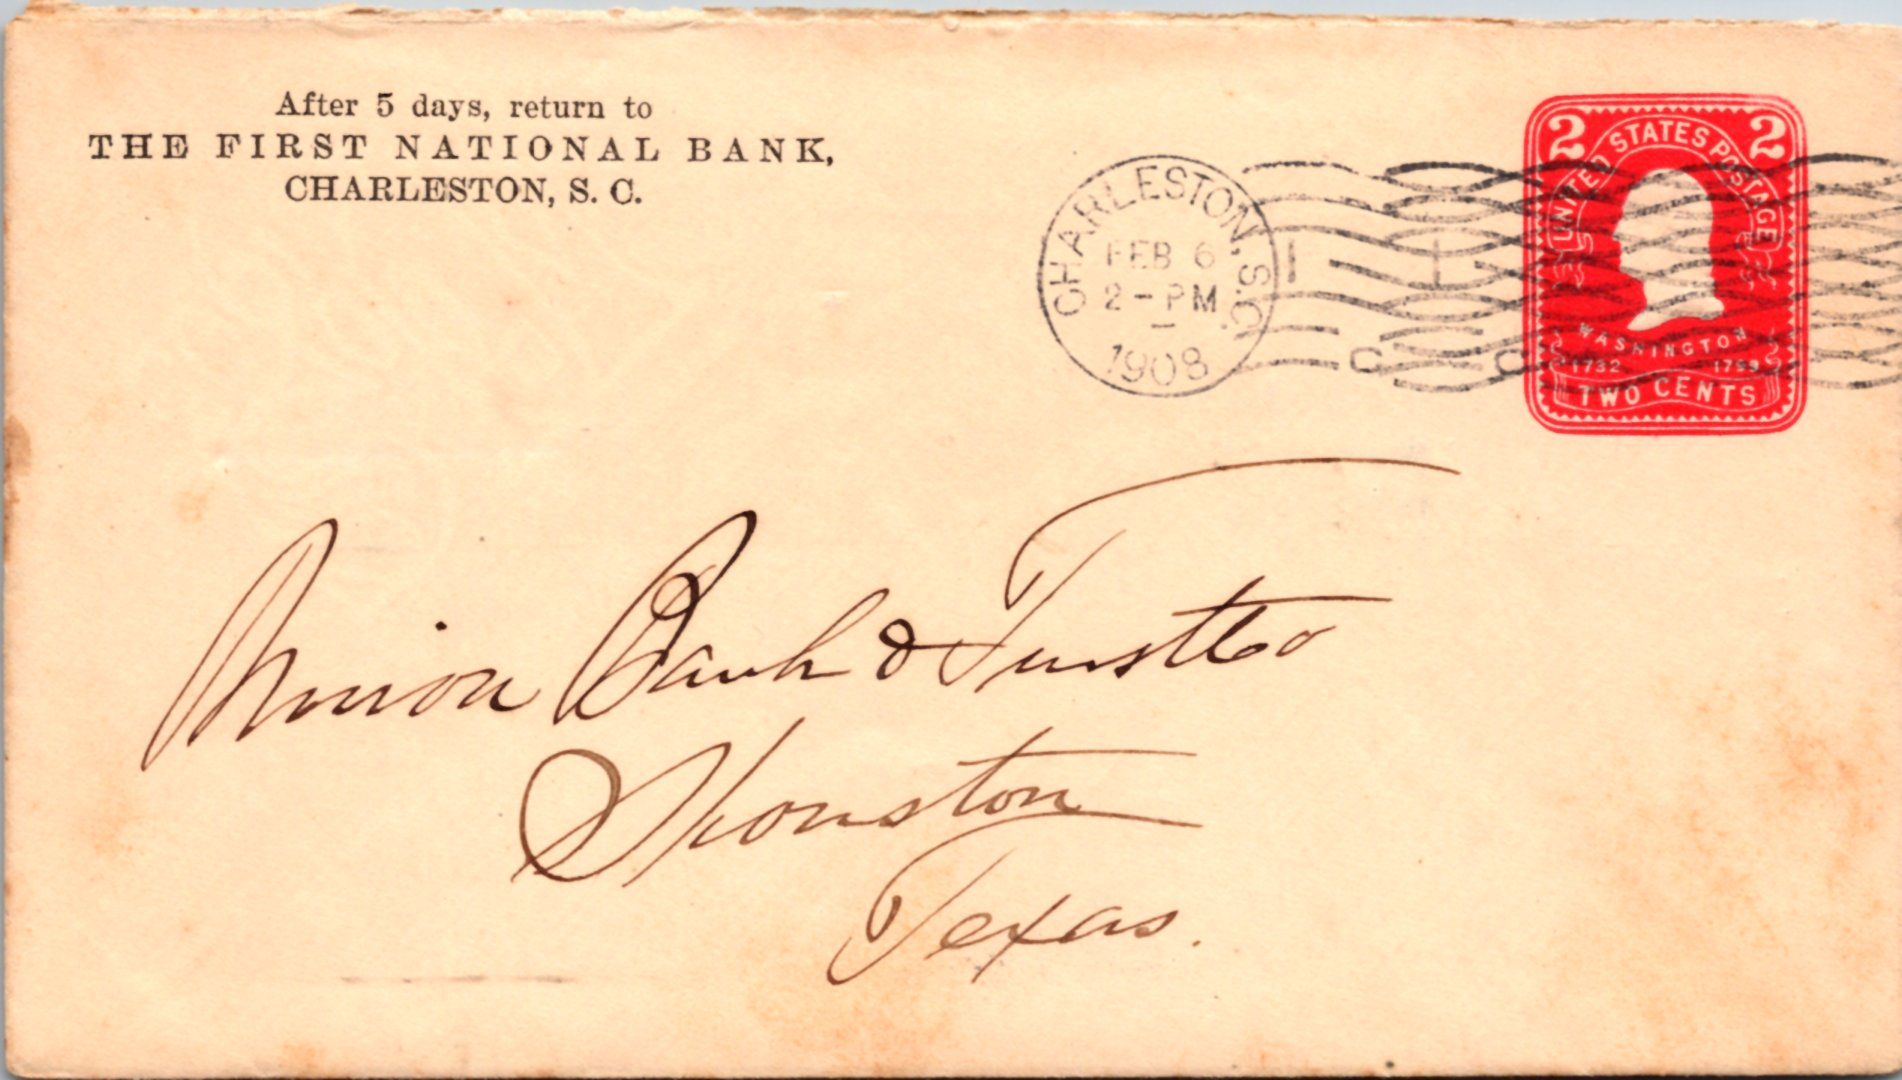 After 5 days, return to
THE FIRST NATIONAL BANK,
CHARLESTON, S. C.
CHARLESTON, S.C.
FEB 6
2 - PM
1908
2 2
UNITED STATES POSTAGE
WASHINGTON
1732 1799
TWO CENTS
Union Bank & Trust Co
Houston
Texas.